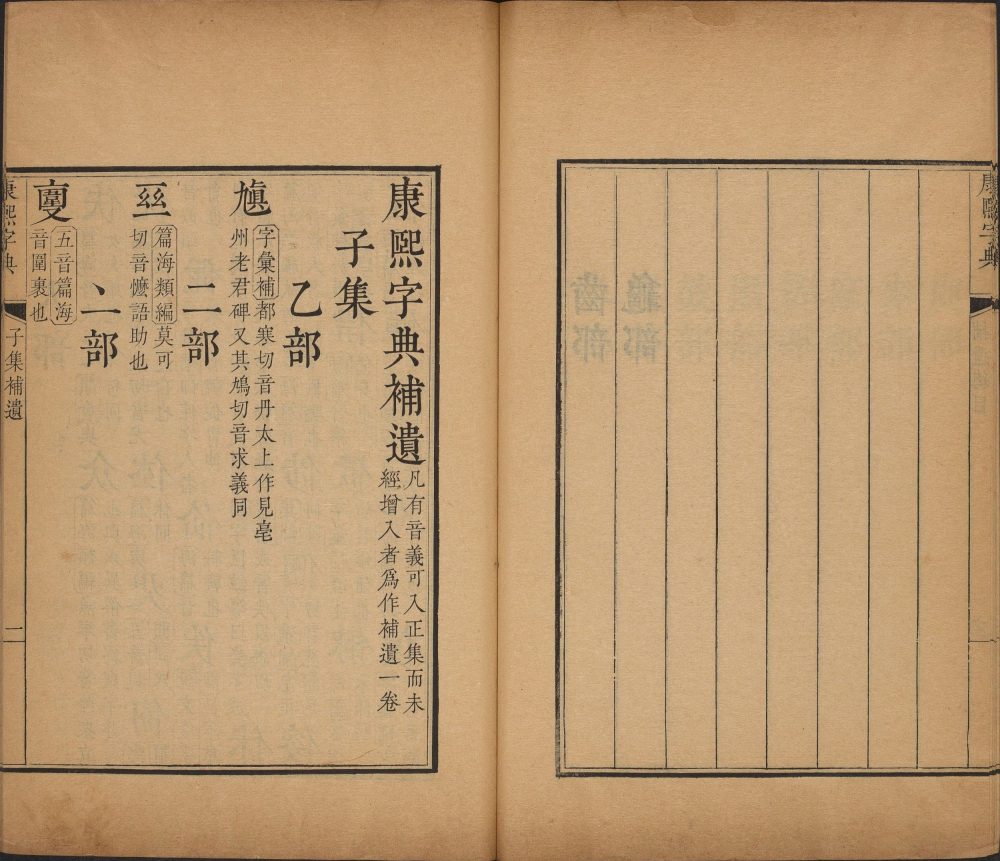 康熙字典
齒部
龜部
康熙字典補遺
凡有音義可入正集而未
經增入者爲作補遺一卷
子集
乙部
字彙補都寒切音丹太上作見亳
州老君碑又其鳩切音求義同
二部
篇海類編莫可
切音麽語助也
亠部
五音篇海
音圍裹也
康熙字典
子集補遺
一